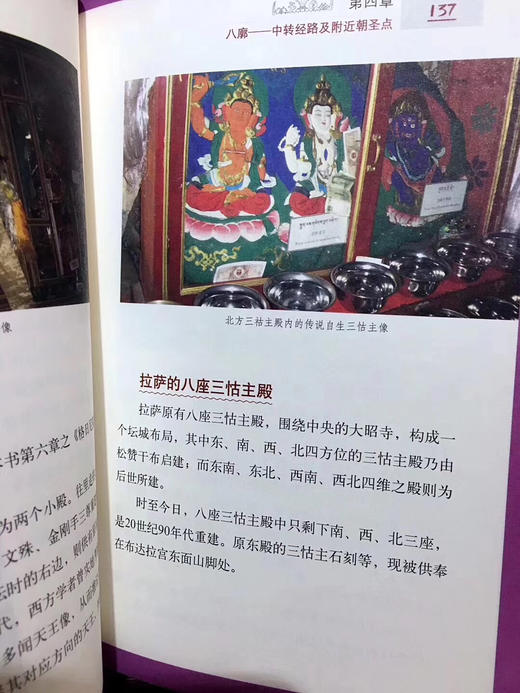 像
书第六章之《格日
为两个小殿。往里走
文殊、金刚手三尊
坛时的右边，则供有
代，西方学者曾实地
多闻天王像，从而
其对应方向的天王，
第四章
137
八廓——中转经路及附近朝圣点
北方三祜主殿内的传说自生三怙主像
拉萨的八座三怙主殿
拉萨原有八座三怙主殿，围绕中央的大昭寺，构成一
个坛城布局，其中东、南、西、北四方位的三怙主殿乃由
松赞干布启建；而东南、东北、西南、西北四维之殿则为
后世所建。
时至今日，八座三怙主殿中只剩下南、西、北三座，
是20世纪90年代重建。原东殿的三怙主石刻等，现被供奉
在布达拉宫东面山脚处。